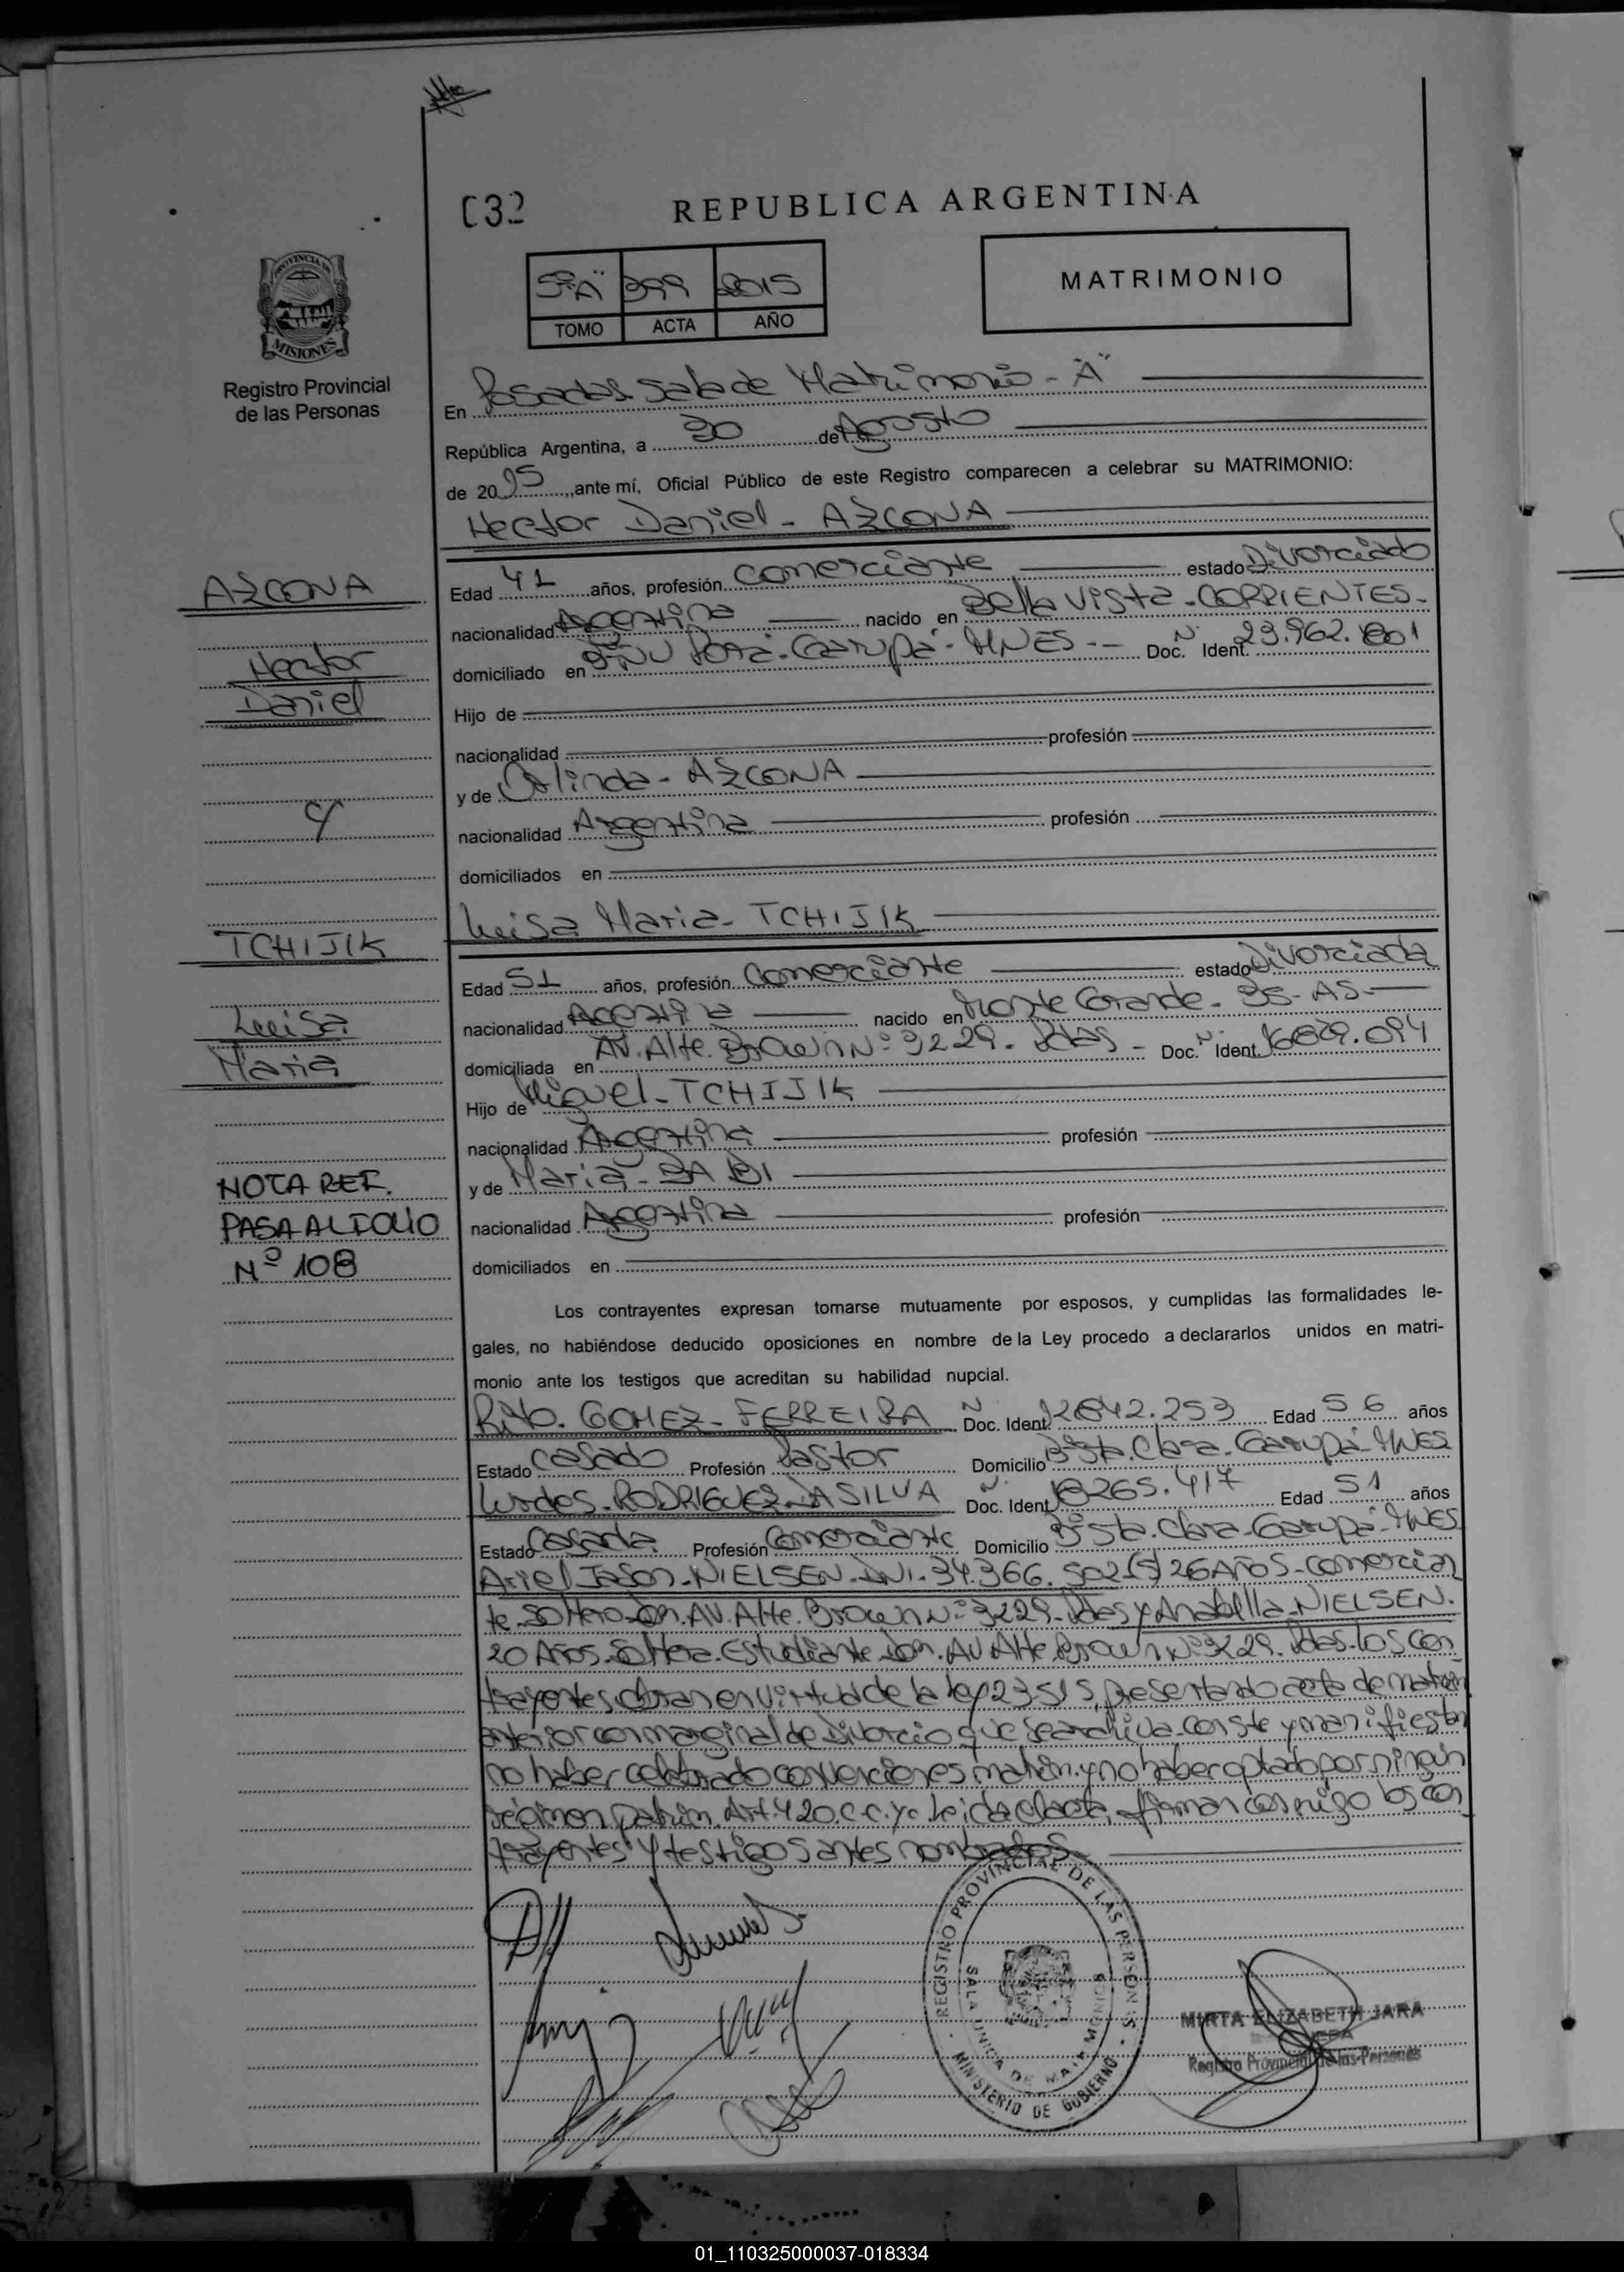 C32
REPUBLICA ARGENTINA
PROVINCIA DE
MISIONES
Registro Provincial
de las Personas
5º"A" 399 2015
TOMO ACTA AÑO
MATRIMONIO
En Posadas Sala de Matrimonio - "A"
República Argentina, a 30 de Agosto
de 20 15, ante mí, Oficial Público de este Registro comparecen a celebrar su MATRIMONIO:
Hector Daniel - AZCONA
AZCONA
Hector
Daniel
y
TCHIJIK
Luisa
Maria
NOTA REF.
PASA AL FOLIO
Nº 108
Edad 41 años, profesión Comerciante estado Divorciado
nacionalidad Argentina nacido en Bella Vista - CORRIENTES -
domiciliado en Porá - Garupá - MNES -- Doc. Nº Ident. 23.962.801
Hijo de
nacionalidad profesión
y de Orlinda - AZCONA
nacionalidad Argentina profesión
domiciliados en
Luisa Maria - TCHIJIK
Edad 51 años, profesión Comerciante estado Divorciada
nacionalidad Argentina nacido en Monte Grande - BS - AS -
domiciliada en AV. Alte. Brown Nº 3229 - Pdas - Doc. Nº Ident. 16829.094
Hijo de Miguel - TCHIJIK
nacionalidad Argentina profesión
y de Maria - BABI
nacionalidad Argentina profesión
domiciliados en
Los contrayentes expresan tomarse mutuamente por esposos, y cumplidas las formalidades le-
gales, no habiéndose deducido oposiciones en nombre de la Ley procedo a declararlos unidos en matri-
monio ante los testigos que acreditan su habilidad nupcial.
GOMEZ - FERREIRA Nº Doc. Ident. 12842.253 Edad 56 años
Estado Casado Profesión Pastor Domicilio Bº Sta. Clara - Garupá - MNES
Lurdes - RODRIGUEZ DA SILVA Nº Doc. Ident. 18265.417 Edad 51 años
Estado Casada Profesión Comerciante Domicilio Bº Sta. Clara - Garupá - MNES
Ariel Jason - NIELSEN - DNI - 34.366.502 (s) 26 AÑOS - comercian
te - Soltero - Dom. AV. Alte. Brown Nº 3229 - Pdas y Anabella - NIELSEN.
20 AÑOS - Soltera - Estudiante - Dom. AV. Alte Brown Nº 3229. Pdas - los con
trayentes obran en virtud de la ley 23515, presentando acta de matrim
anterior con marginal de Divorcio que se archiva. Conste y manifiestan
no haber celebrado convenciones matrim. y no haber optado por ningún
régimen patrim. Art. 420. C.C. y c. Leida el acta, firman conmigo los con
trayentes y testigos antes nombrados
REGISTRO PROVINCIAL DE LAS PERSONAS
SALA UNICA DE MATRIMONIOS
- MINISTERIO DE GOBIERNO -
MIRTA ELIZABETH JARA
JEFA
Registro Provincial de las Personas
01_110325000037-018334